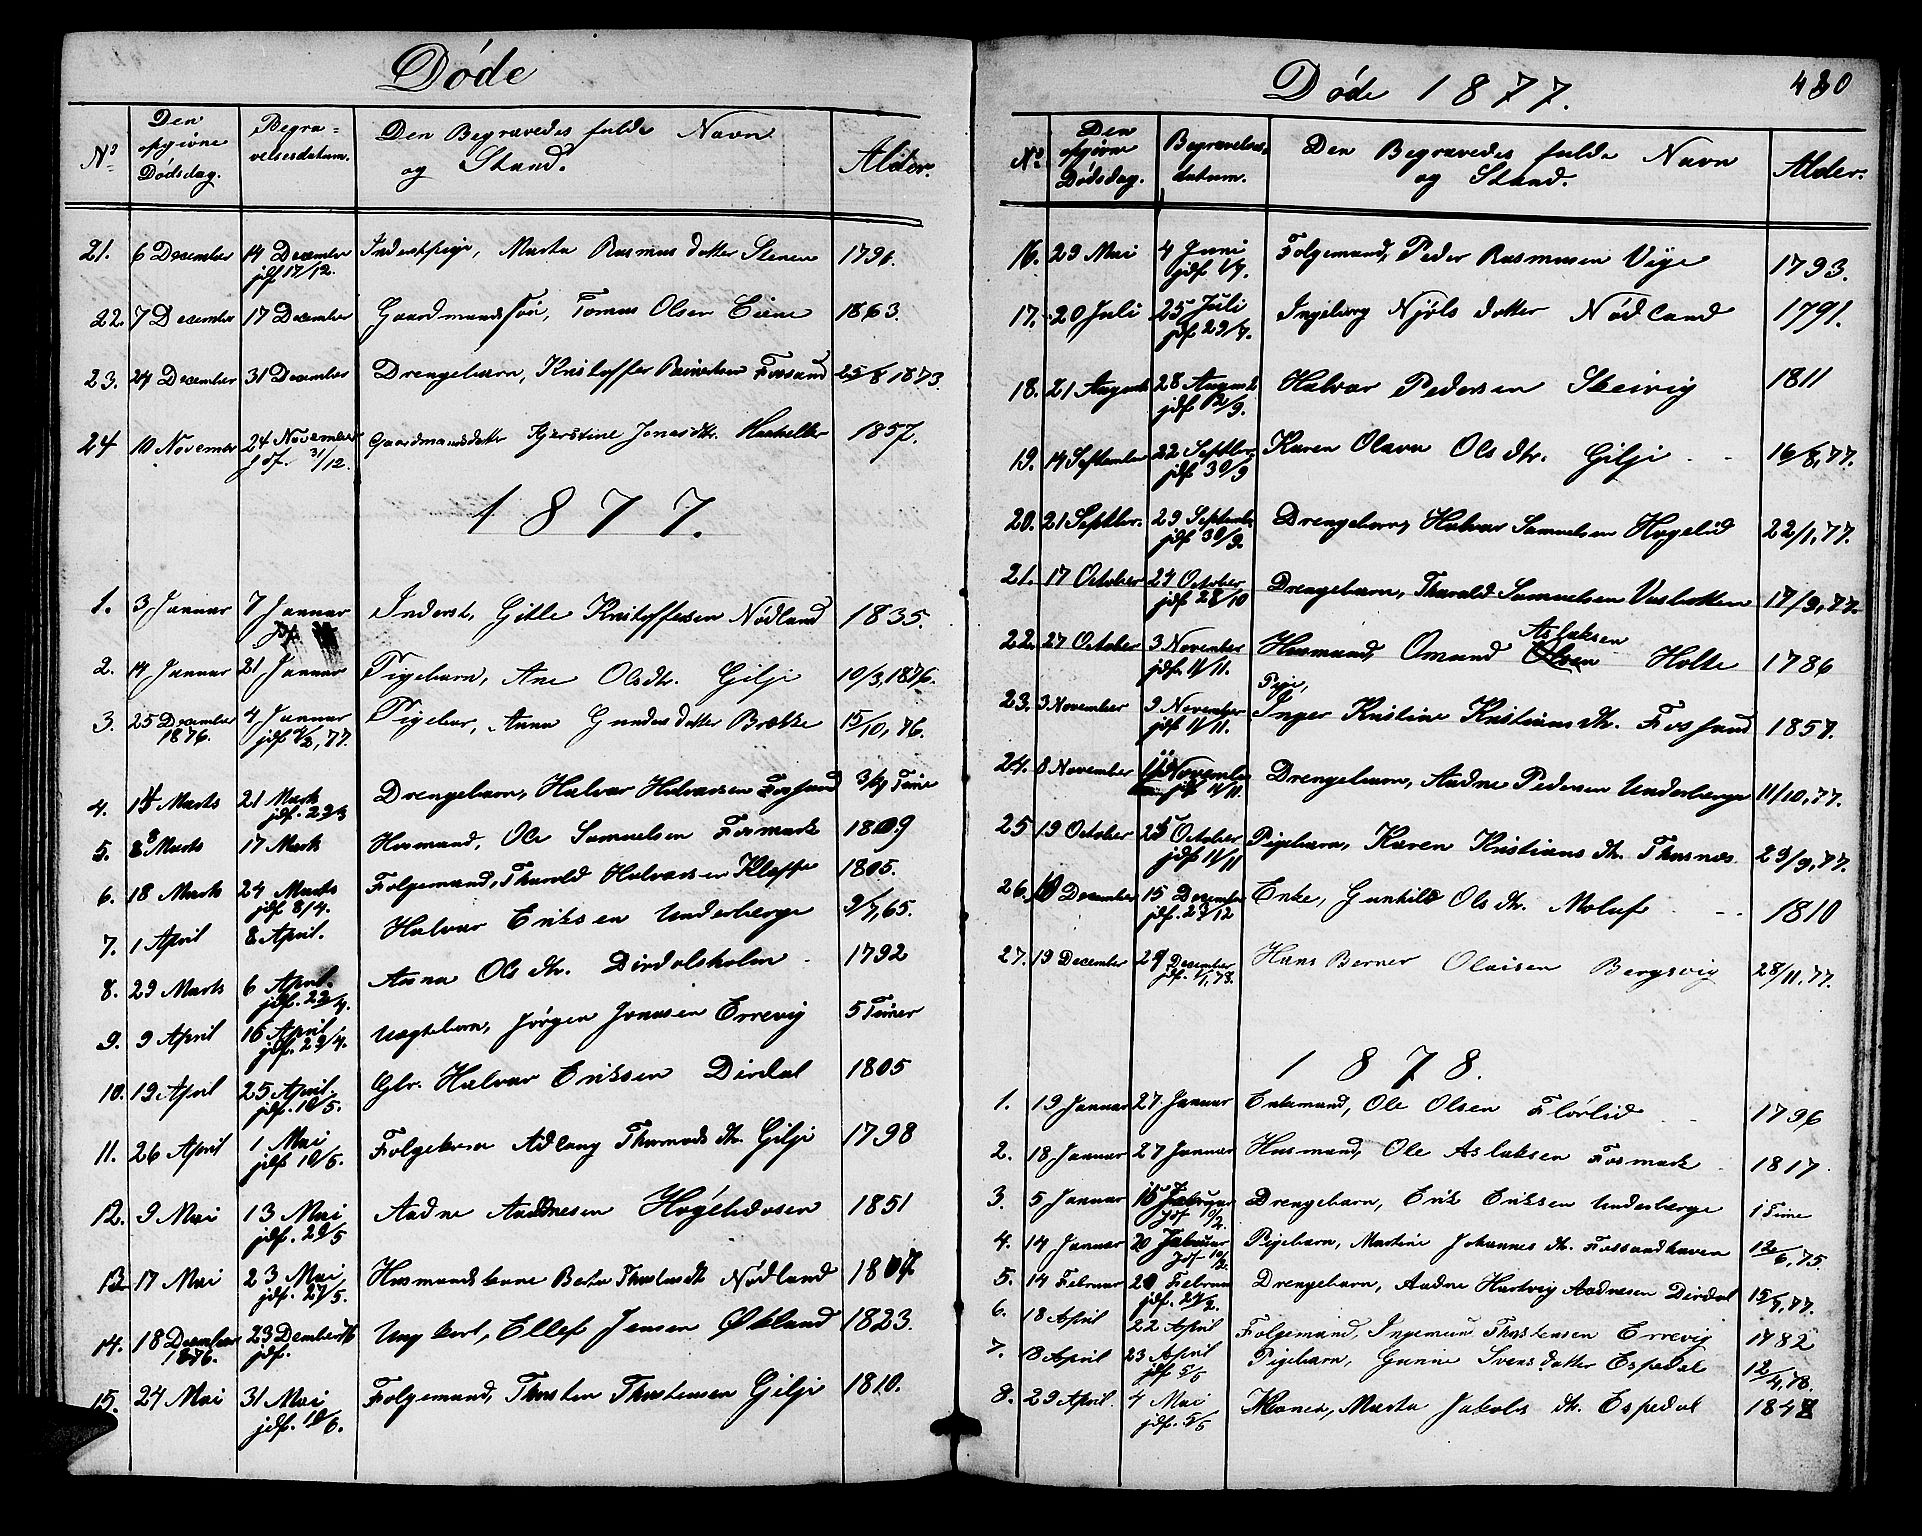 Døde
No. Den opgivne Dødsdag. Begravelsesdatum. Den Begravedes fulde Navn og Stand. Alder.
21. 6 December 14 December jdf 17/12. Inderstpige, Marta Rasmusdatter Stenen 1791.
22. 7 December 17 December Gaardmandssøn, Tomas Olsen Eiene 1863.
23. 24 December 31 December Drengebarn, Kristoffer Fossand 25/8 1873.
24 10 November 24 November jdf. 31/12. Gaardmandsdatter Kjerstine Jonasdtr. Haaheller 1857.
1877.
1. 3 Januar 7 Januar Inderst, Gitle Kristoffersen Nødland 1835.
2. 14 Januar 21 Januar Pigebarn, Ane Olsdtr. Gilje 10/3, 1876.
3. 25 December 1876. 4 Januar jdf 4/3, 77. Pigebar, Anna Gundersdatter Brække 15/10, 76.
4. 14 Marts 21 Marts jdf. 29/3 Drengebarn, Halvar Halvarsen Fossand 3/4 Time
5. 8 Marts 17 Marts Husmand, Ole Samuelsen Fosmark 1809
6. 18 Marts 24 Marts jdf 8/4. Folgemand, Tharald Halvarsen Kleppe 1805.
7. 1 April 8 April. Halvar Eriksen Underberge 9/7, 65.
8. 29 Marts 6 April. jdf. 29/4. Anna Olsdtr. Dirdalsholm 1792
9. 9 April 16 April jdf. 29/4. Uægtebarn, Jørgen Jonassen Errevig 5 Timer
10. 19 April 25 April. jdf. 10/5. Gbr. Halvar Eriksen Dirdal 1805
11. 26 April 1 Mai jdf 10/5. Folgekone Adlaug Thormodsdtr. Gilje 1798
12. 9 Mai 13 Mai jdf. 29/5 Aadne Aadnesen Høgelidosen 1851
13. 17 Mai 23 Mai jdf. 29/5. Husmandskone Berta Nødland 1807
14. 18 December 1876. 23 Dember 76 jdf. Ungkarl, Ellef Jensen Økland 1823.
15. 24 Mai 31 Mai jdf. 10/6. Folgemand, Thorsten Thorstensen Gilje 1810.
Døde 1877. 480
No. Den opgivne Dødsdag. Begravelsesdatum. Den Begravedes fulde Navn og Stand. Alder.
16. 29 Mai 4 Juni jdf 1/7. Folgemand, Peder Rasmusen Veje 1793.
17. 20 Juli 25 Juli jdf 29/7. Ingeborg Njølsdatter Nødland 1791.
18. 21 August 28 August jdf 12/9. Halvar Pedersen Skeivig 1811
19. 14 September 22 Septbr. jdf 30/9 Karen Olava Olsdtr. Gilje 16/8, 77.
20. 21 Septbr. 29 September jdf 30/9. Drengebarn, Halvar Samuelsen Høgelid 22/1, 77.
21. 17 October 24 October jdf 28/10 Drengebarn, Tharald Samuelsen Vasbotten 17/9, 77.
22. 27 October 3 November jdf. 11/11. Husmand, Omund Aslaksen Olsen Holte 1786
23. 3 November 9 November jdf 11/11. Pige, Inger Kristine Kristiansdtr. Fossand 1857.
24. 8 November 11 November jdf 11/11. Drengebarn, Aadne Pedersen Underberge 11/10, 77.
25 19 October 25 October jdf 11/11 Pigebarn, Karen Kristiansdtr. Thorsnes 29/9, 77.
26. 10 December 15 December jdf. 23/12 Enke, Gunhild Olsdtr. Moluf 1810
27. 19 December 29 December jdf. 1/1, 78. Hans Berner Olaisen Bergsvig 28/11, 77.
1878.
1. 19 Januar 27 Januar Enkemand, Ole Olsen Flørlid 1796
2. 18 Januar 27 Januar Husmand, Ole Aslaksen Fosmark 1817
3. 5 Januar 15 Januar jdf 10/2. Drengebarn, Erik Eriksen Underberge 1 Time
4. 14 Januar 20 Januar jdf 10/2. Pigebarn, Martine Johannesdtr. Fossandhaven 12/6, 75.
5. 14 Februar 20 Februar jdf. 24/2. Drengebarn, Aadne Hartvig Aadnesen Dirdal 15/7, 77.
6. 18 April 22 April Folgemand, Ingemund Thorstensen Errevig 1782
7. 18 April 23 April jdf 5/5 Pigebarn, Gunne Svensdatter Espedal 12/4, 78.
8. 29 April. 4 Mai jdf. 5/5 Kone, Marta Jakobsdtr. Espedal 1848